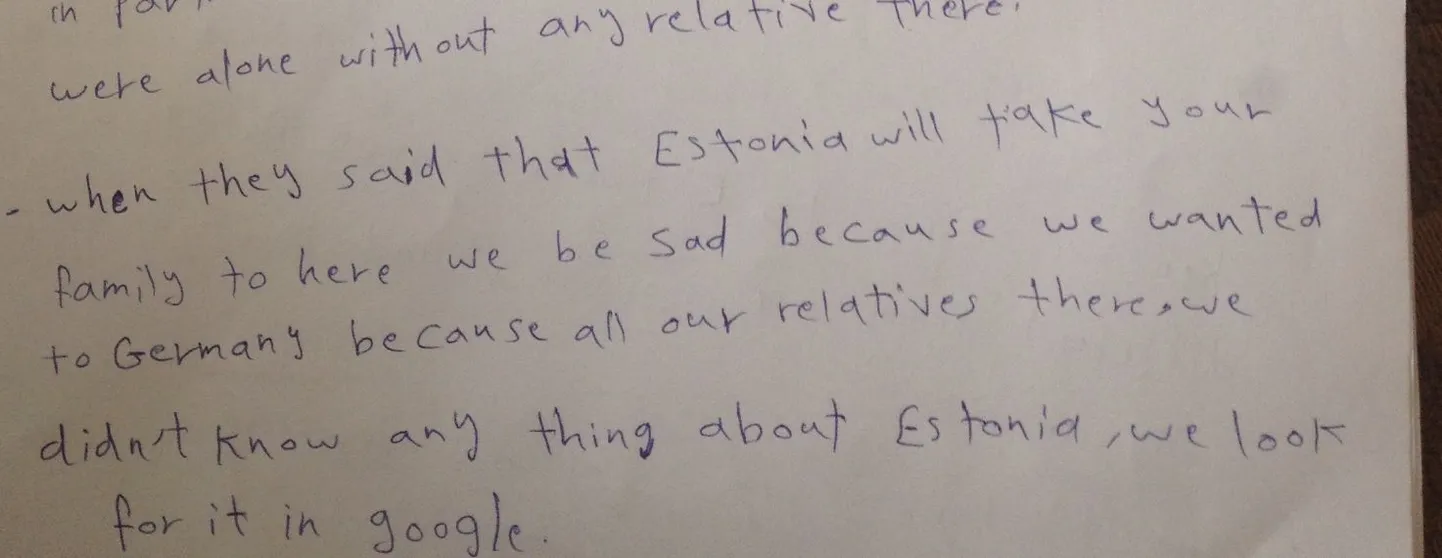 in
were alone without any relative there.
- when they said that Estonia will take your
family to here we be sad because we wanted
to Germany because all our relatives there, we
didn't know any thing about Estonia, we look
for it in google.